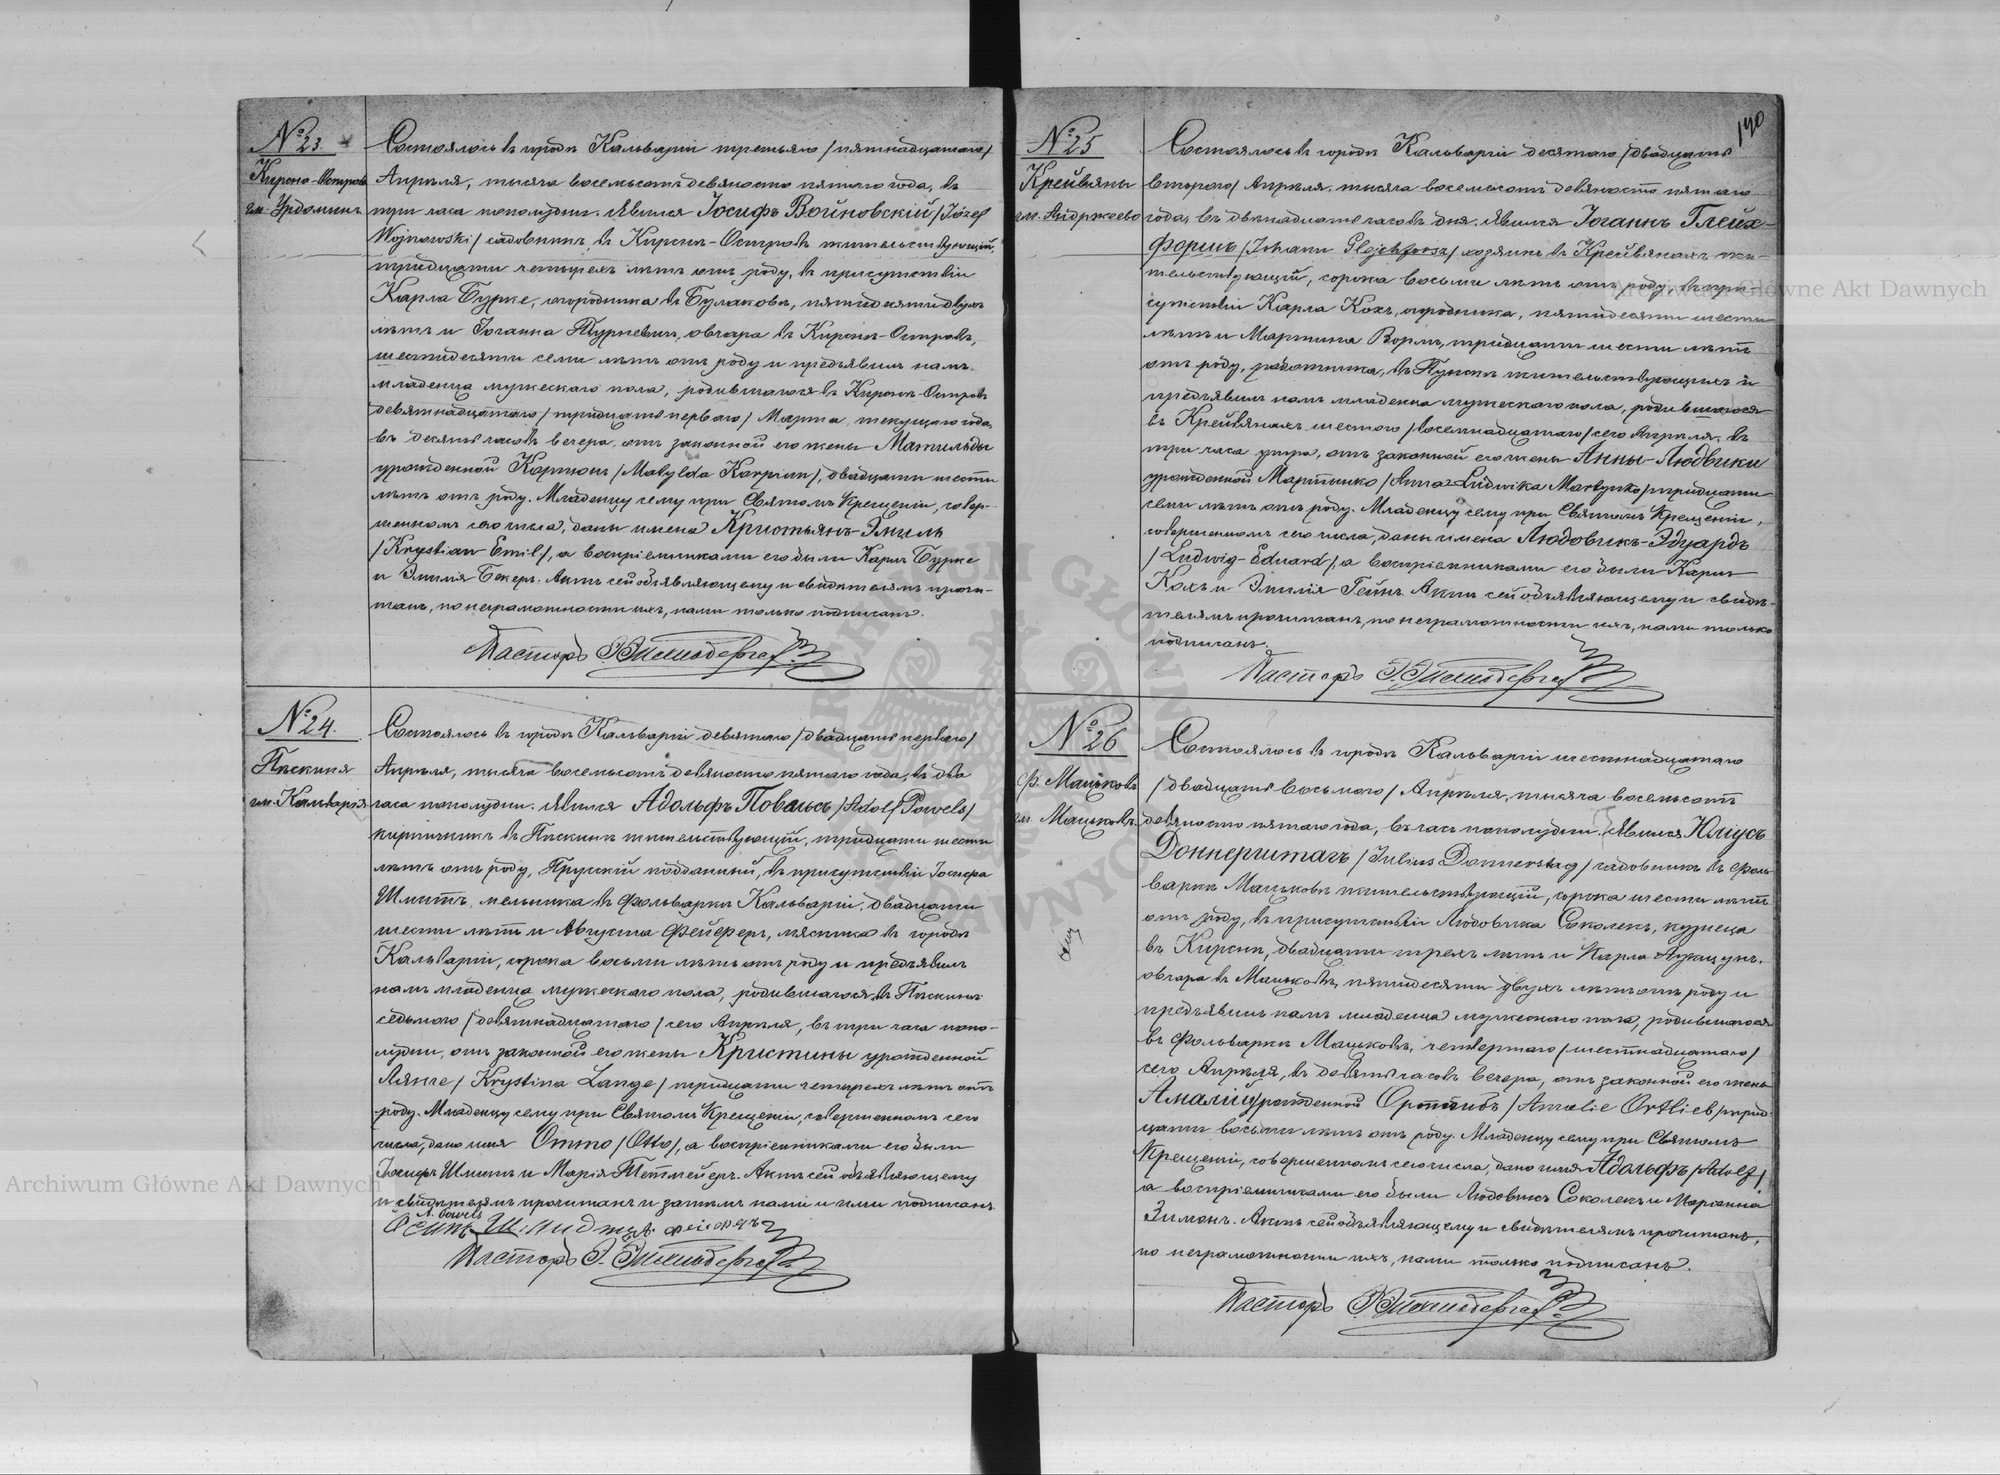 № 23.
Кирсна-Островъ
гм. Урдоминъ
Состоялось въ городѣ Кальваріи третьяго /пятнадцатаго/
Апрѣля, тысяча восемьсотъ девяносто пятаго года, въ
три часа пополудни. Явился Іосифъ Войновскій /Józef
Wojnowski/ садовникъ, въ Кирснѣ-Островѣ жительствующій,
тридцати четырехъ лѣтъ отъ роду, въ присутствіи
Карла Бурке, огородника въ Булаковѣ, пятидесяти двухъ
лѣтъ и Іоганна Туркевичъ, овчара въ Кирснѣ-Островѣ,
шестидесяти семи лѣтъ отъ роду и предъявилъ намъ
младенца мужескаго пола, родившагося въ Кирснѣ-Островѣ
девятнадцатаго /тридцать перваго/ Марта, текущаго года,
въ десять часовъ вечера, отъ законной его жены Матильды
урожденной Карпюнъ /Matylda Karpiun/, двадцати шести
лѣтъ отъ роду. Младенцу сему при Святомъ Крещеніи, совер-
шенномъ сего числа, даны имена Кристьянъ-Эмиль
/Krystian-Emil/, а воспріемниками его были Карлъ Бурке
и Эмилія Бекеръ. Актъ сей объявляющему и свидѣтелямъ прочи-
танъ, по неграмотности ихъ, нами только подписанъ.
Пасторъ
№ 24.
Пѣскиня
гм. Кальварія
Состоялось въ городѣ Кальваріи девятаго /двадцать перваго/
Апрѣля, тысяча восемьсотъ девяносто пятаго года, въ два
часа пополудни. Явился Адольфъ Повельсъ /Adolf Powels/
кирпичникъ въ Пѣскинѣ жительствующій, тридцати шести
лѣтъ отъ роду, Прусскій подданный, въ присутствіи Іосифа
Шмитъ, мельника въ Фольваркѣ Кальваріи, двадцати
шести лѣтъ и Августа Фейферъ, мясника въ городѣ
Кальваріи, сорока восьми лѣтъ отъ роду и предъявилъ
намъ младенца мужескаго пола, родившагося въ Пѣскинѣ
седьмого /девятнадцатаго/ сего Апрѣля, въ три часа попо-
лудни, отъ законной его жены Кристины урожденной
Лянге /Krystina Lange/ тридцати четырехъ лѣтъ отъ
роду. Младенцу сему при Святомъ Крещеніи, совершенномъ сего
числа, дано имя Отто /Otto/, а воспріемниками его были
Іосифъ Шмитъ и Марія Тетмейеръ. Актъ сей объявляющему
и свидѣтелямъ прочитанъ и затѣмъ нами и ими подписанъ
A. Powels
Осипъ Шмидтъ А. Фейферъ
Пасторъ
190
№ 25
Крейвяны
гм. Андржеево
Состоялось въ городѣ Кальваріи десятаго /двадцать
второго/ Апрѣля, тысяча восемьсотъ девяносто пятаго
года, въ двѣнадцать часовъ дня. Явился Іоганнъ Глейх-
форшъ /Johann Glejchforsz/ хозяинъ въ Крейвянахъ жи-
тельствующій, сорока восьми лѣтъ отъ роду, въ при-
сутствіи Карла Кохъ, огородника, пятидесяти шести
лѣтъ и Мартина Вормъ, тридцати шести лѣтъ
отъ роду, работника, въ Пунскѣ жительствующихъ и
предъявилъ намъ младенца мужескаго пола, родившагося
въ Крейвянахъ шестого /восемнадцатаго/ сего Апрѣля, въ
три часа утра, отъ законной его жены Анны-Людвики
урожденной Мартынко /Anna-Ludwika Martynko/ тридцати
семи лѣтъ отъ роду. Младенцу сему при Святомъ Крещеніи,
совершенномъ сего числа, даны имена Людовикъ-Эдуардъ
/Ludwig-Eduard/, а воспріемниками его были Карлъ
Кохъ и Эмилія Гейнъ. Актъ сей объявляющему и свидѣ-
телямъ прочитанъ, по неграмотности ихъ, нами только
подписанъ.
Пасторъ
№ 26
ф. Мацьковъ
гм. Мацьковъ
Состоялось въ городѣ Кальваріи шестнадцатаго
/двадцать восьмого/ Апрѣля, тысяча восемьсотъ
девяносто пятаго года, въ часъ пополудни. Явился Юліусъ
Доннерштагъ /Julius Donnerstag/ садовникъ въ Фоль-
варкѣ Мацьковѣ жительствующій, сорока шести лѣтъ
отъ роду, въ присутствіи Людовика Соколекъ, кузнеца
въ Кирснѣ, двадцати трехъ лѣтъ и Карла
овчара въ Мацьковѣ, пятидесяти двухъ лѣтъ отъ роду и
предъявилъ намъ младенца мужескаго пола, родившагося
въ Фольваркѣ Мацьковѣ, четвертаго /шестнадцатаго/
сего Апрѣля, въ девять часовъ вечера, отъ законной его жены
Амаліи урожденной Ортлибъ /Amalie Ortlieb/ трид-
цати восьми лѣтъ отъ роду. Младенцу сему при Святомъ
Крещеніи, совершенномъ сего числа, дано имя Адольфъ /Adolf/
а воспріемниками его были Людовикъ Соколекъ и Маріанна
Зимонъ. Актъ сей объявляющему и свидѣтелямъ прочитанъ,
по неграмотности ихъ, нами только подписанъ.
Пасторъ
Archiwum Główne Akt Dawnych
Archiwum Główne Akt Dawnych